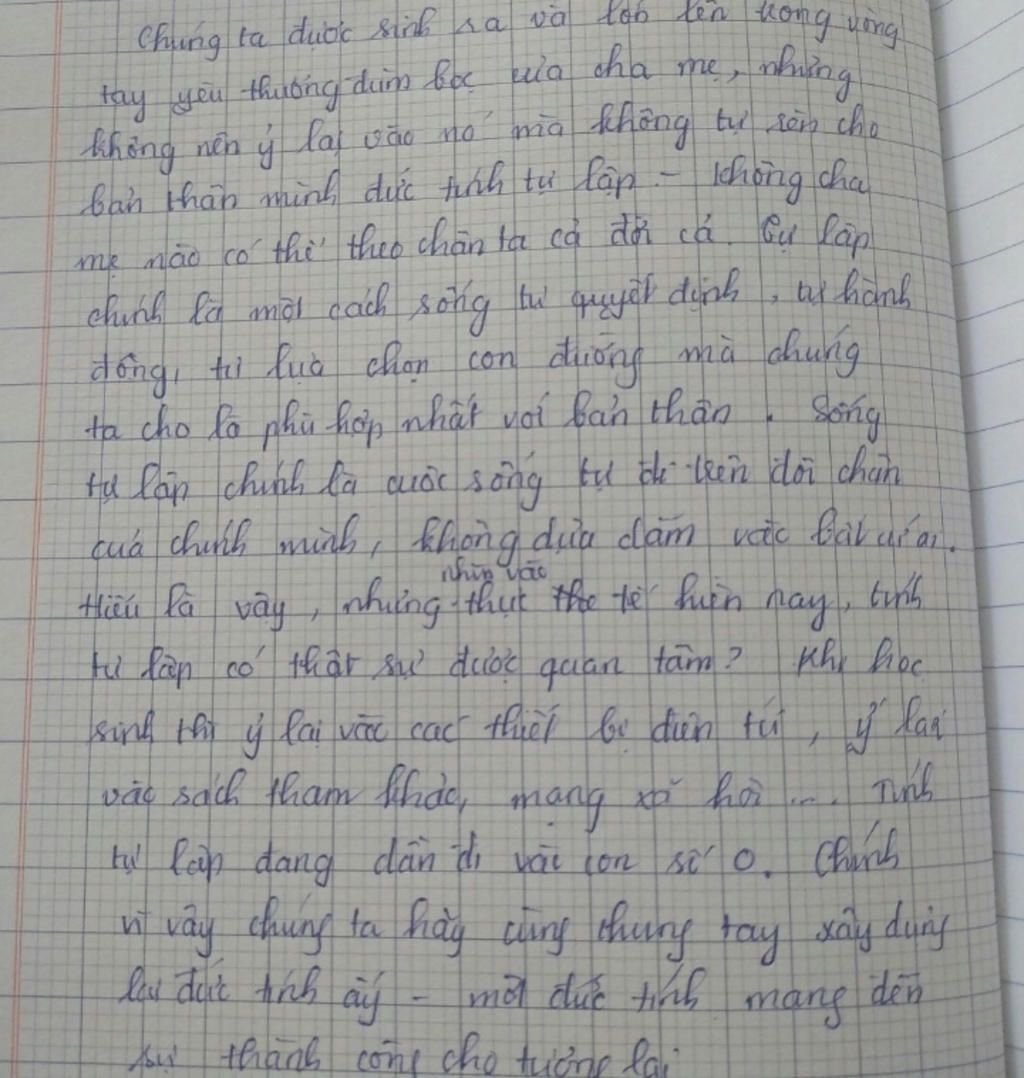 Chúng ta được sinh ra và lớn lên trong vòng
tay yêu thương đùm bọc của cha mẹ, nhưng
không nên ỷ lại vào nó mà không tự rèn cho
bản thân mình đức tính tự lập - không cha
mẹ nào có thể theo chân ta cả đời cả. Tự lập
chính là một cách sống tự quyết định, tự hành
động, tự lựa chọn con đường mà chúng
ta cho là phù hợp nhất với bản thân. Sống
tự lập chính là cuộc sống tự đi trên đôi chân
của chính mình, không dựa dẫm vào bất cứ ai.
Hiểu là vậy, nhưng nhìn vào thực tế hiện nay, tính
tự lập có thật sự được quan tâm? Khi học
sinh thì ỷ lại vào các thiết bị điện tử, ỷ lại
vào sách tham khảo, mạng xã hội .... Tính
tự lập đang dần đi vài con số 0. Chính
vì vậy chúng ta hãy cùng chung tay xây dựng
lại đức tính ấy - một đức tính mang đến
sự thành công cho tương lai